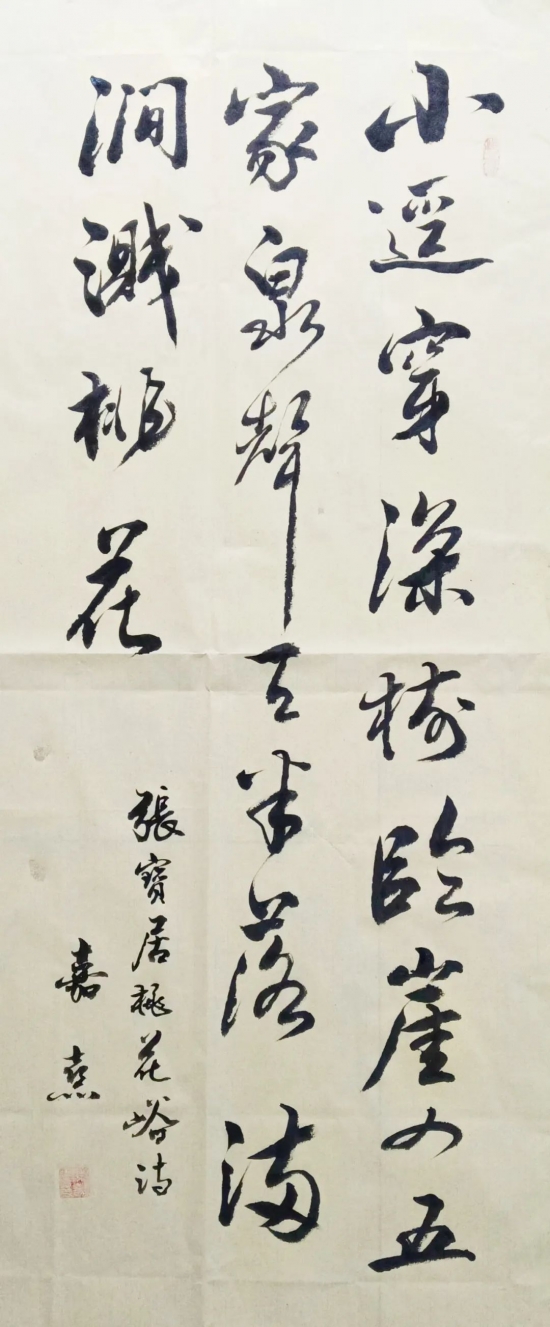 小逕穿深樹臨崖四五
家泉聲天半落滿
澗濺桃花
張寶居桃花峪詩
嘉熹